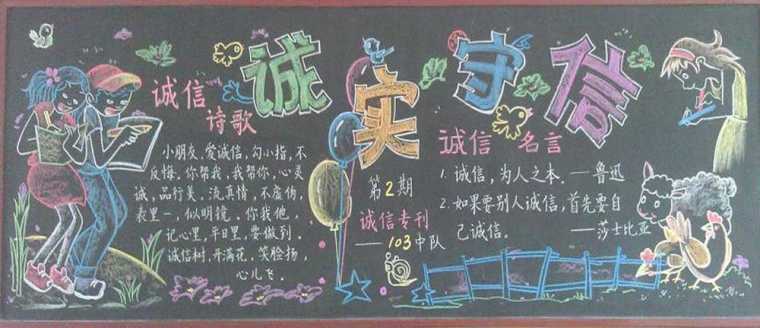 诚实守信
诚信
诗歌
小朋友,爱诚信,勾小指,不
反悔,你帮我,我帮你,心灵
诚,品行美.流真情,不虚伪,
表里一,似明镜.你我他,
记心里,平日里,要做到.
诚信树,开满花,笑脸扬,
心儿飞.
第2期
诚信专刊
——103中队
诚信 名言
1.诚信,为人之本.——鲁迅
2.如果要别人诚信,首先要自
己诚信. ——莎士比亚